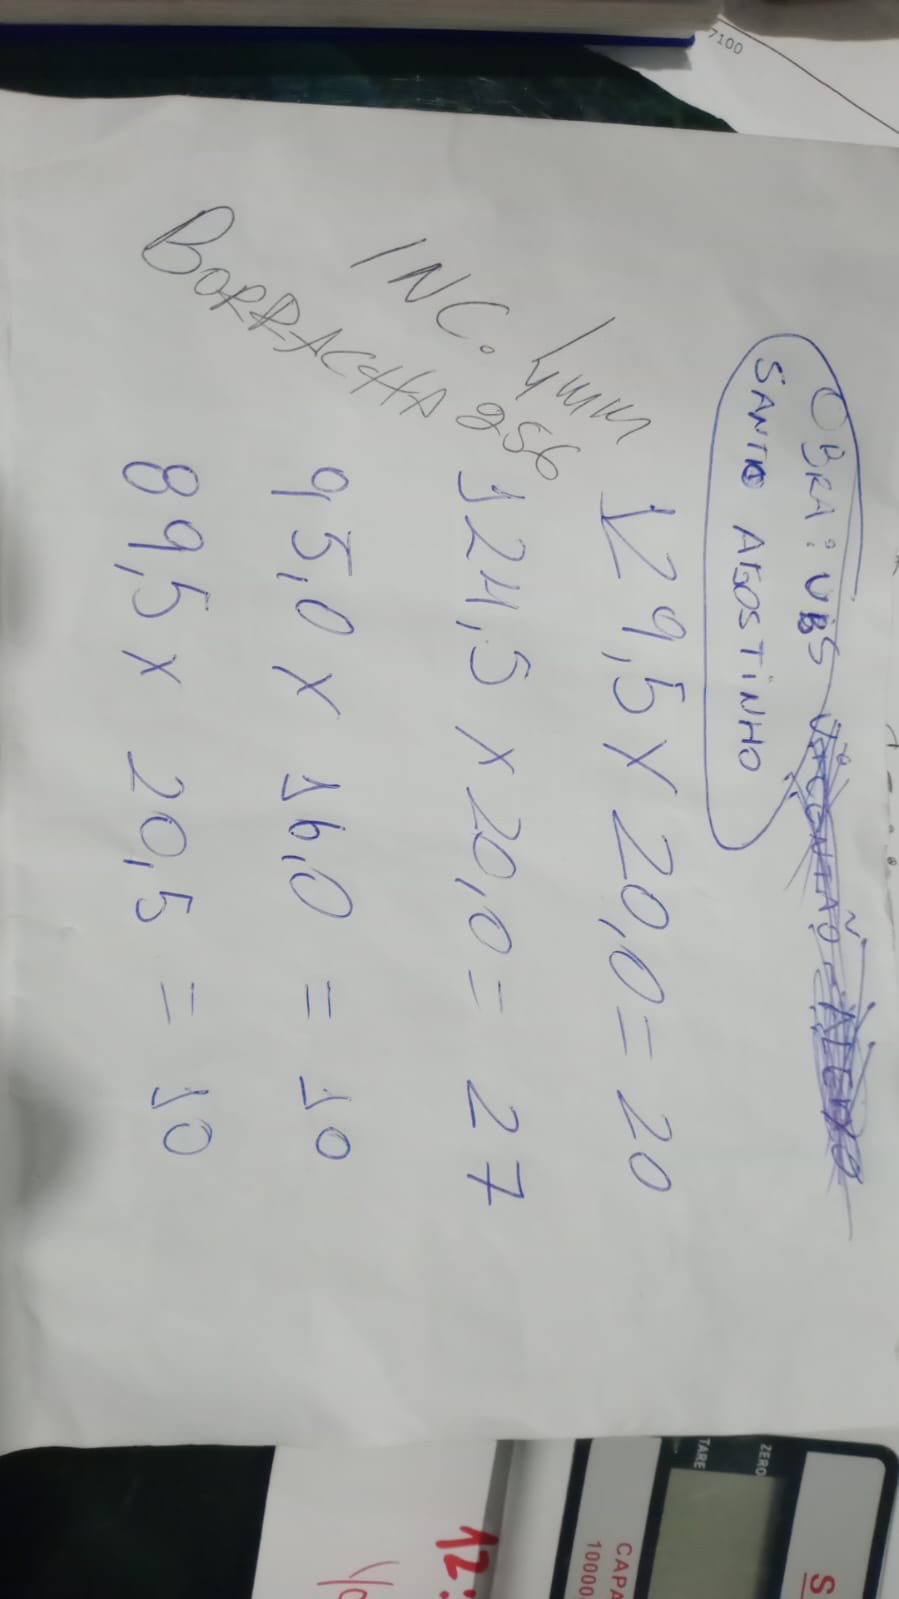 OBRA: UBS
SANTO AGOSTINHO
129,5 X 20,0 = 20
124,5 X 20,0 = 27
95,0 X 16,0 = 10
89,5 X 20,5 = 10
INC. 4mm
BORRACHA 256
7100
ZERO
TARE
CAPA
10000
S
12: